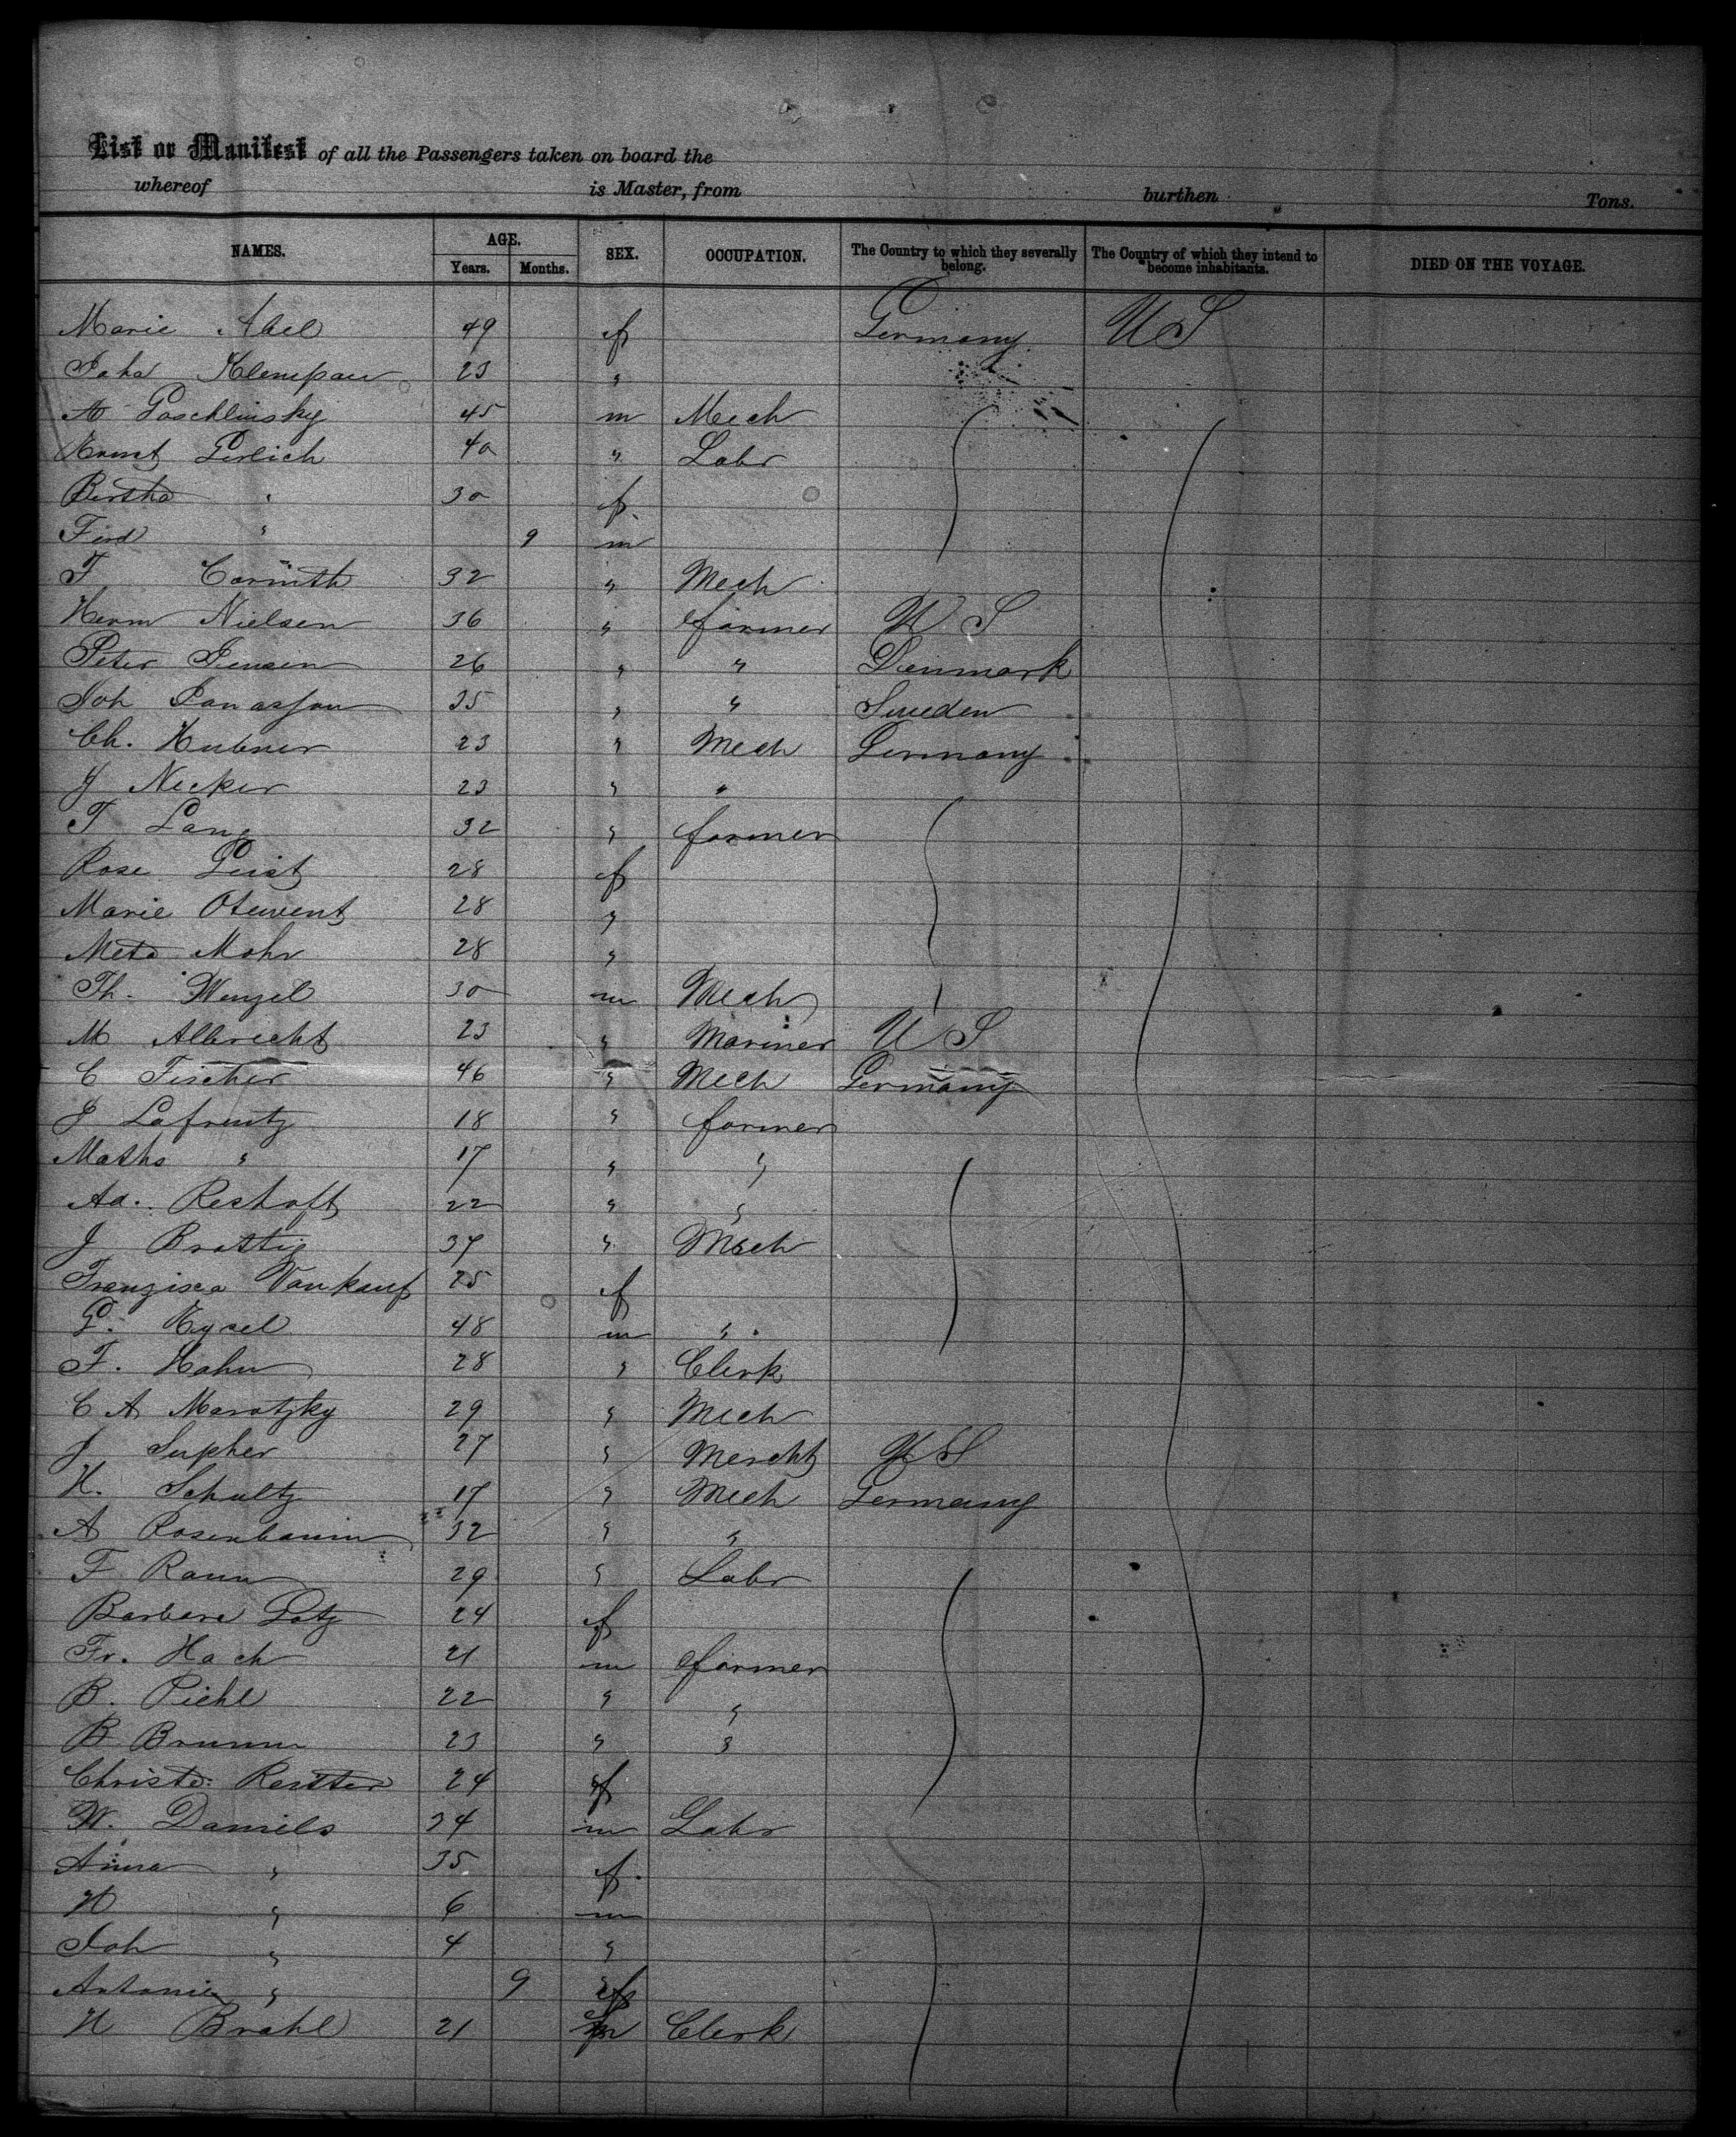 List or Manifest of all the Passengers taken on board the
whereof is Master, from burthen Tons.
NAMES. AGE. Years. Months. SEX. OCCUPATION. The Country to which they severally belong. The Country of which they intend to become inhabitants. DIED ON THE VOYAGE.
Marie Abel 49 f Germany US
Joha Klempau 23 "
A Goschlinsky 45 m Mech
Ernst Gerlich 40 " Labr
Bertha " 30 f.
Ferd " 9 m
F Corinth 32 " Mech
Herm Nielsen 36 " farmer U.S
Peter Jensen 26 " " Denmark
Joh Jonasson 35 " " Sweden
Ch. Hubner 23 " Mech Germany
J Necker 23 " "
F Lang 32 " farmer
Rose Geist 28 f
Marie Otewent 28 "
Meta Mohr 28 "
Th. Wenzel 30 m Mech
M Albrecht 23 " Mariner US
C Fischer 46 " Mech Germany
J Lafrentz 18 " farmer
Maths " 17 " "
Ad. Reshoft 22 " "
J Brattig 37 " Mech
Franzisca Vankauf 25 f
G. Kysel 48 m "
F. Hahn 28 " Clerk
C A Marotzky 29 " Mech
J Supher 27 " Mercht US
H. Schultz 17 " Mech Germany
A Rosenbaum 32 " "
F Raun 29 " Labr
Barbara Gotz 24 f
Fr. Hach 21 m farmer
B. Piehl 22 " "
B Brumm 23 " "
Christe: Reutter 24 f
W. Daniels 34 m Labr
Anna " 35 f.
H " 6 m
Joh " 4 "
Antonie " 9 f
H Brahl 21 m Clerk